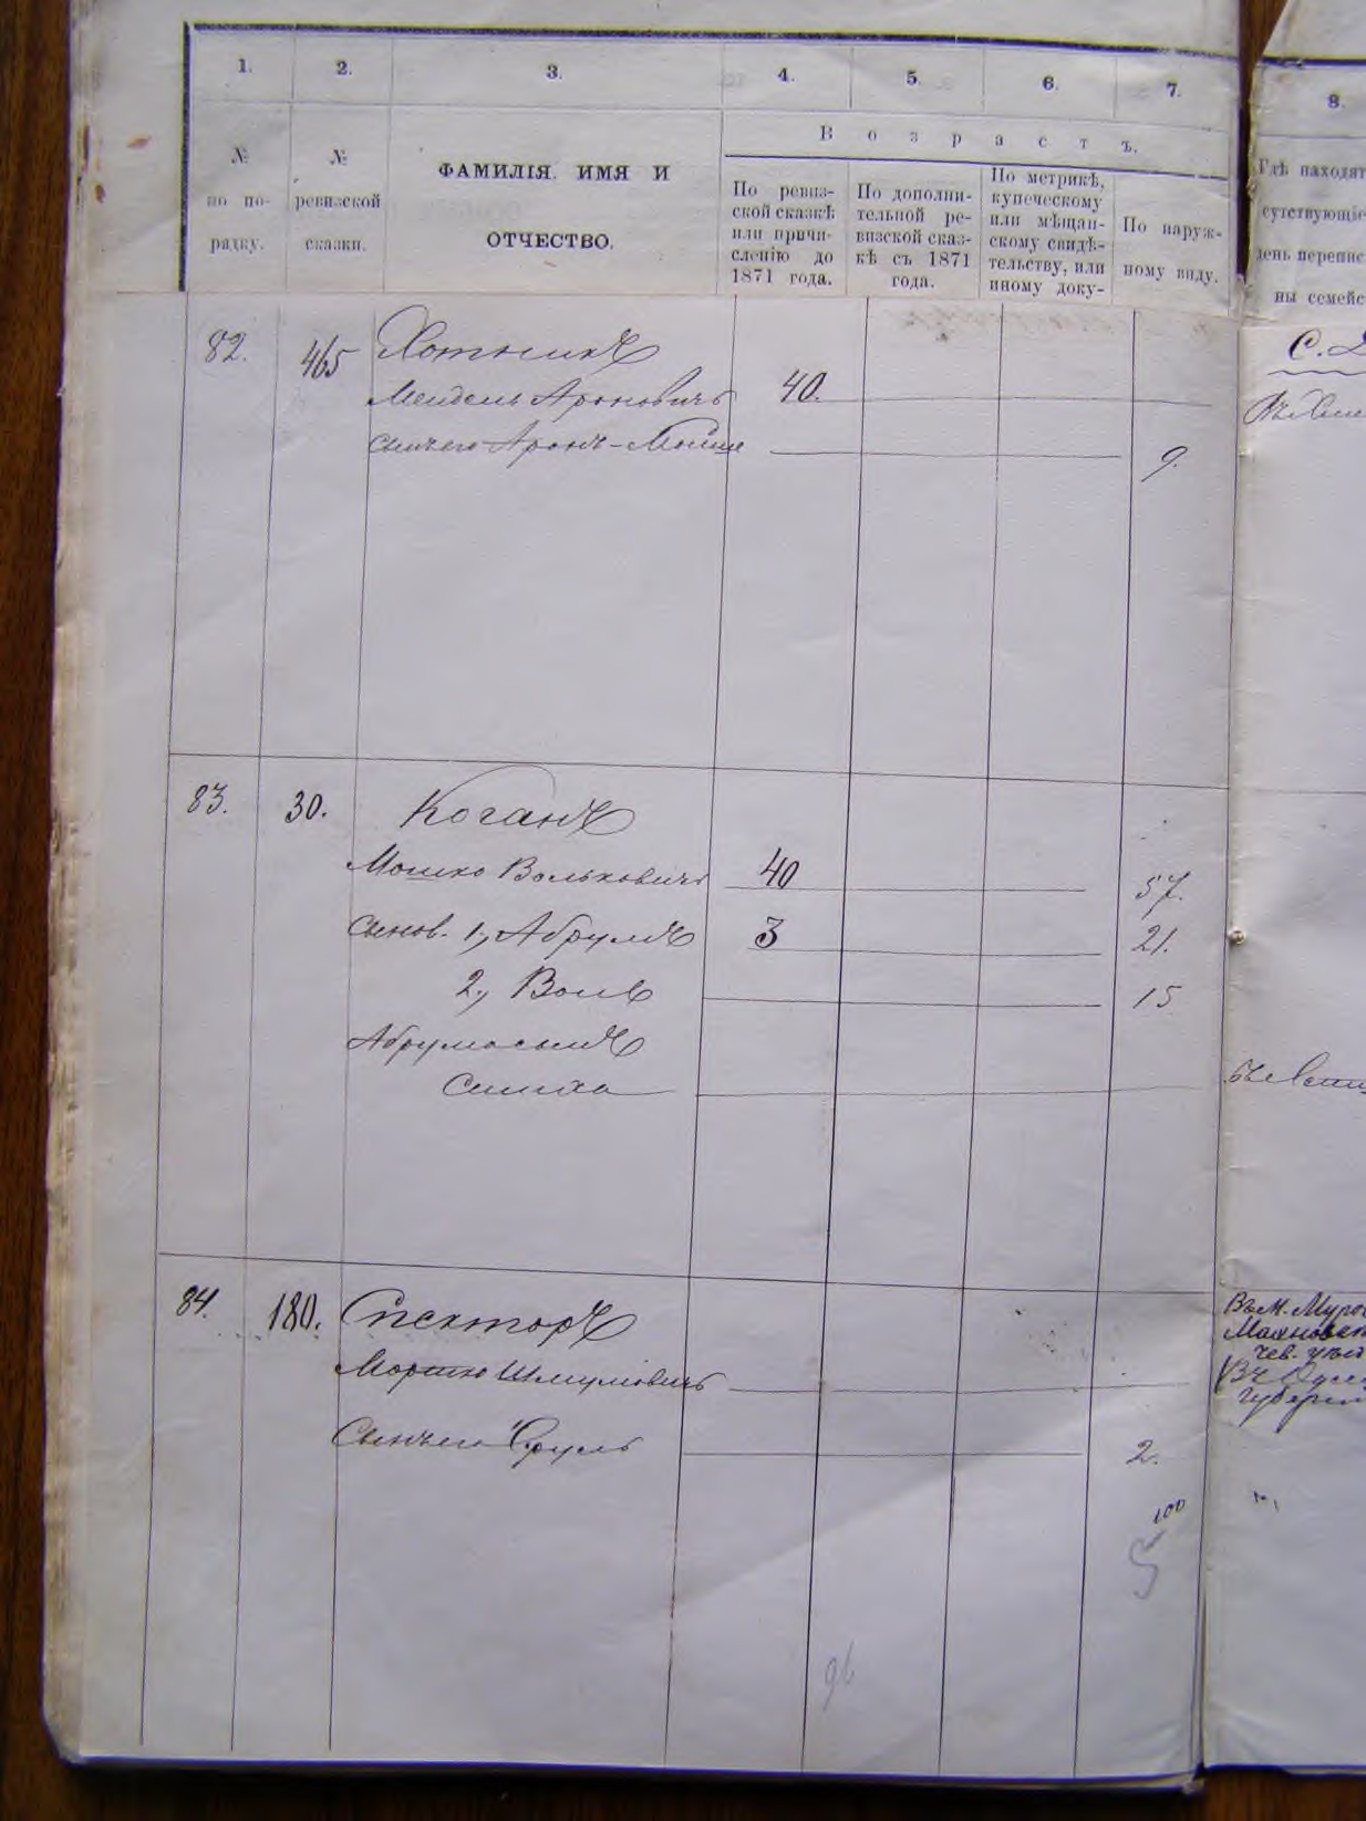 1. 2. 3. 4. 5. 6. 7. 8.
В о з р а с т ъ.
№ по по-рядку.
№ ревизской сказки.
ФАМИЛІЯ. ИМЯ И
ОТЧЕСТВО.
По ревиз-
ской сказкѣ
или причи-
сленію до
1871 года.
По дополни-
тельной ре-
визской сказ-
кѣ съ 1871
года.
По метрикѣ,
купеческому
или мѣщан-
скому свидѣ-
тельству, или
иному доку-
По наруж-
ному виду.
Гдѣ находят
сутствующіе
день перепис
ны семейс
82. 465 Хотникъ
Мендель Ароновичъ 40.
сынъ его Аронъ-Мошко 9.
83. 30. Коганъ
Мошко Вольковичъ 40 57.
Сынов. 1, Абрумъ 3 21.
2, Волъ 15
Абрума сынъ
Симха
84. 180. Спекторъ
Мошко Шмулёвичъ
Сынъ его Сруль 2.
Въ м.
чев. уѣз
Губерні
100
5
96